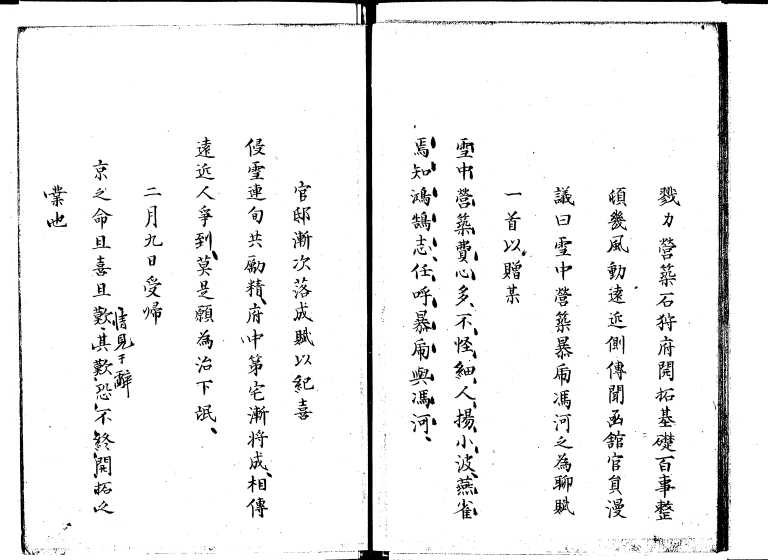 戮力營築石狩府開拓基礎百事整
頓幾風動遠近側傳聞函館官負漫
議曰雪中營築暴乕馮河之為聊賦
一首以贈某
雪中營築費心多、不怪細人揚小波、燕雀
焉知鴻鵠志、任呼暴乕與馮河、
官邸漸次落成賦以紀喜
侵雪連旬共勵精、府中第宅漸將成、相傳
遠近人爭到、莫是願為治下氓、
二月九日受帰
京之命且喜且歎、其歎恐不終開拓之
情見于辭
業也